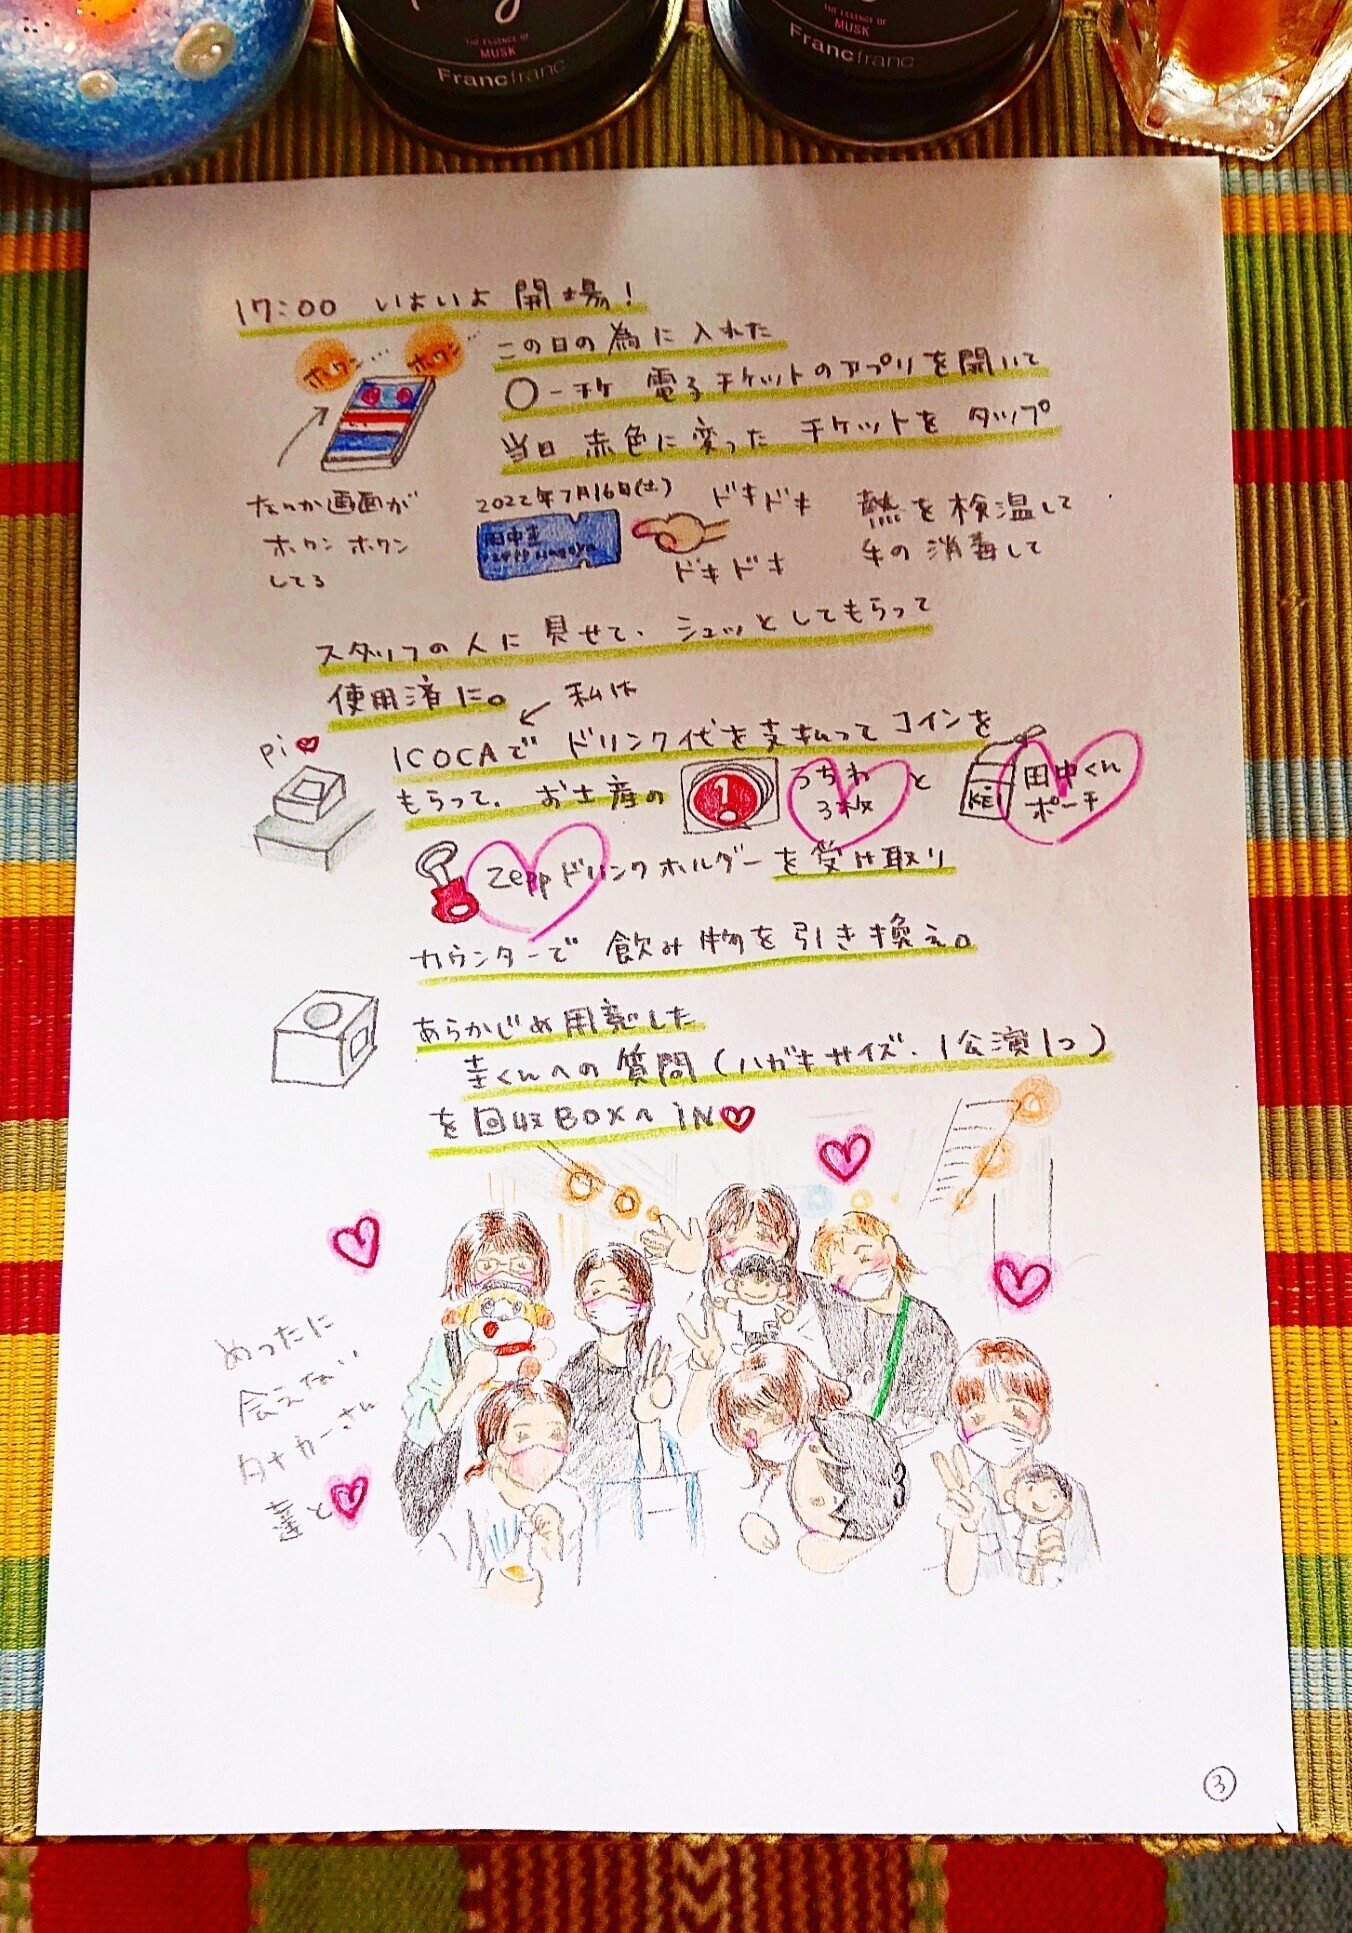 THE ESSENCE OF
MUSK
Francfranc
THE ESSENCE OF
MUSK
Francfranc
17:00 いよいよ開場!
ホワン… ホワン…
この日の為に入れた
〇ーチケ 電子チケットのアプリを開いて
当日 赤色に変った チケットを タップ
なんか画面が
ホワン ホワン
してる
2022年7月16日(土)
田中圭
ドキドキ
ドキドキ
熱を検温して
手の消毒して
スタッフの人に見せて、シュッとしてもらって
使用済に。
私は
pi
ICOCAで ドリンク代を支払って コインを
もらって、お土産の
1
うちわ
3枚
と
KEI
田中くん
ポーチ
Zeppドリンクホルダーを受け取り
カウンターで 飲み物を引き換え。
あらかじめ用意した
圭くんへの質問(ハガキサイズ、1公演1つ)
を回収BOXへ IN
めったに
会えない
タナカーさん
達と
3